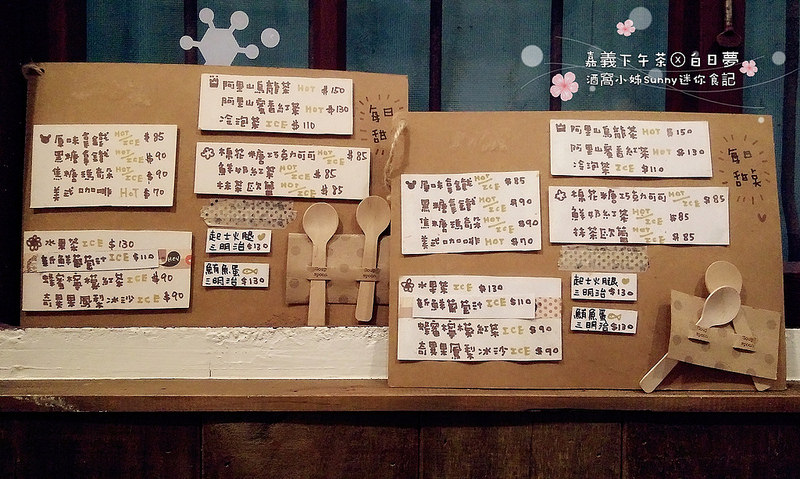 嘉義下午茶ⓧ白日夢
酒窩小姊Sunny迷你食記
阿里山烏龍茶 HOT $150
阿里山蜜香紅茶 HOT $130
冷泡茶 ICE $110
每日
原味拿鐵 HOT/ICE $85
黑糖拿鐵 HOT/ICE $90
焦糖瑪奇朵 HOT/ICE $90
美式咖啡 HOT $70
棉花糖巧克力可可 HOT/ICE $85
鮮奶紅茶 HOT/ICE $85
抹茶歐蕾 HOT/ICE $85
水果茶 ICE $130
新鮮葡萄汁 ICE $110
蜂蜜檸檬紅茶 ICE $90
奇異果鳳梨冰沙 ICE $90
起士火腿
三明治 $130
鮪魚蛋
三明治 $130
阿里山烏龍茶 HOT $150
阿里山蜜香紅茶 HOT $130
冷泡茶 ICE $110
每日
甜笑
原味拿鐵 HOT/ICE $85
黑糖拿鐵 HOT/ICE $90
焦糖瑪奇朵 HOT/ICE $90
美式咖啡 HOT $70
棉花糖巧克力可可 HOT/ICE $85
鮮奶紅茶 HOT/ICE $85
抹茶歐蕾 HOT/ICE $85
水果茶 ICE $130
新鮮葡萄汁 ICE $110
蜂蜜檸檬紅茶 ICE $90
奇異果鳳梨冰沙 ICE $90
起士火腿
三明治 $130
鮪魚蛋
三明治 $130